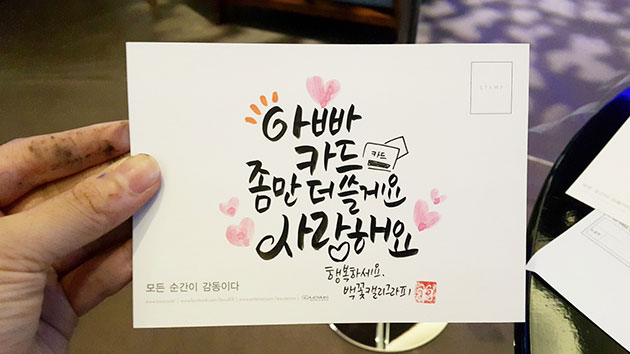 STAMP
아빠
카드
카드
좀만 더 쓸게요
사랑해요
행복하세요.
백꽃캘리그라피
모든 순간이 감동이다